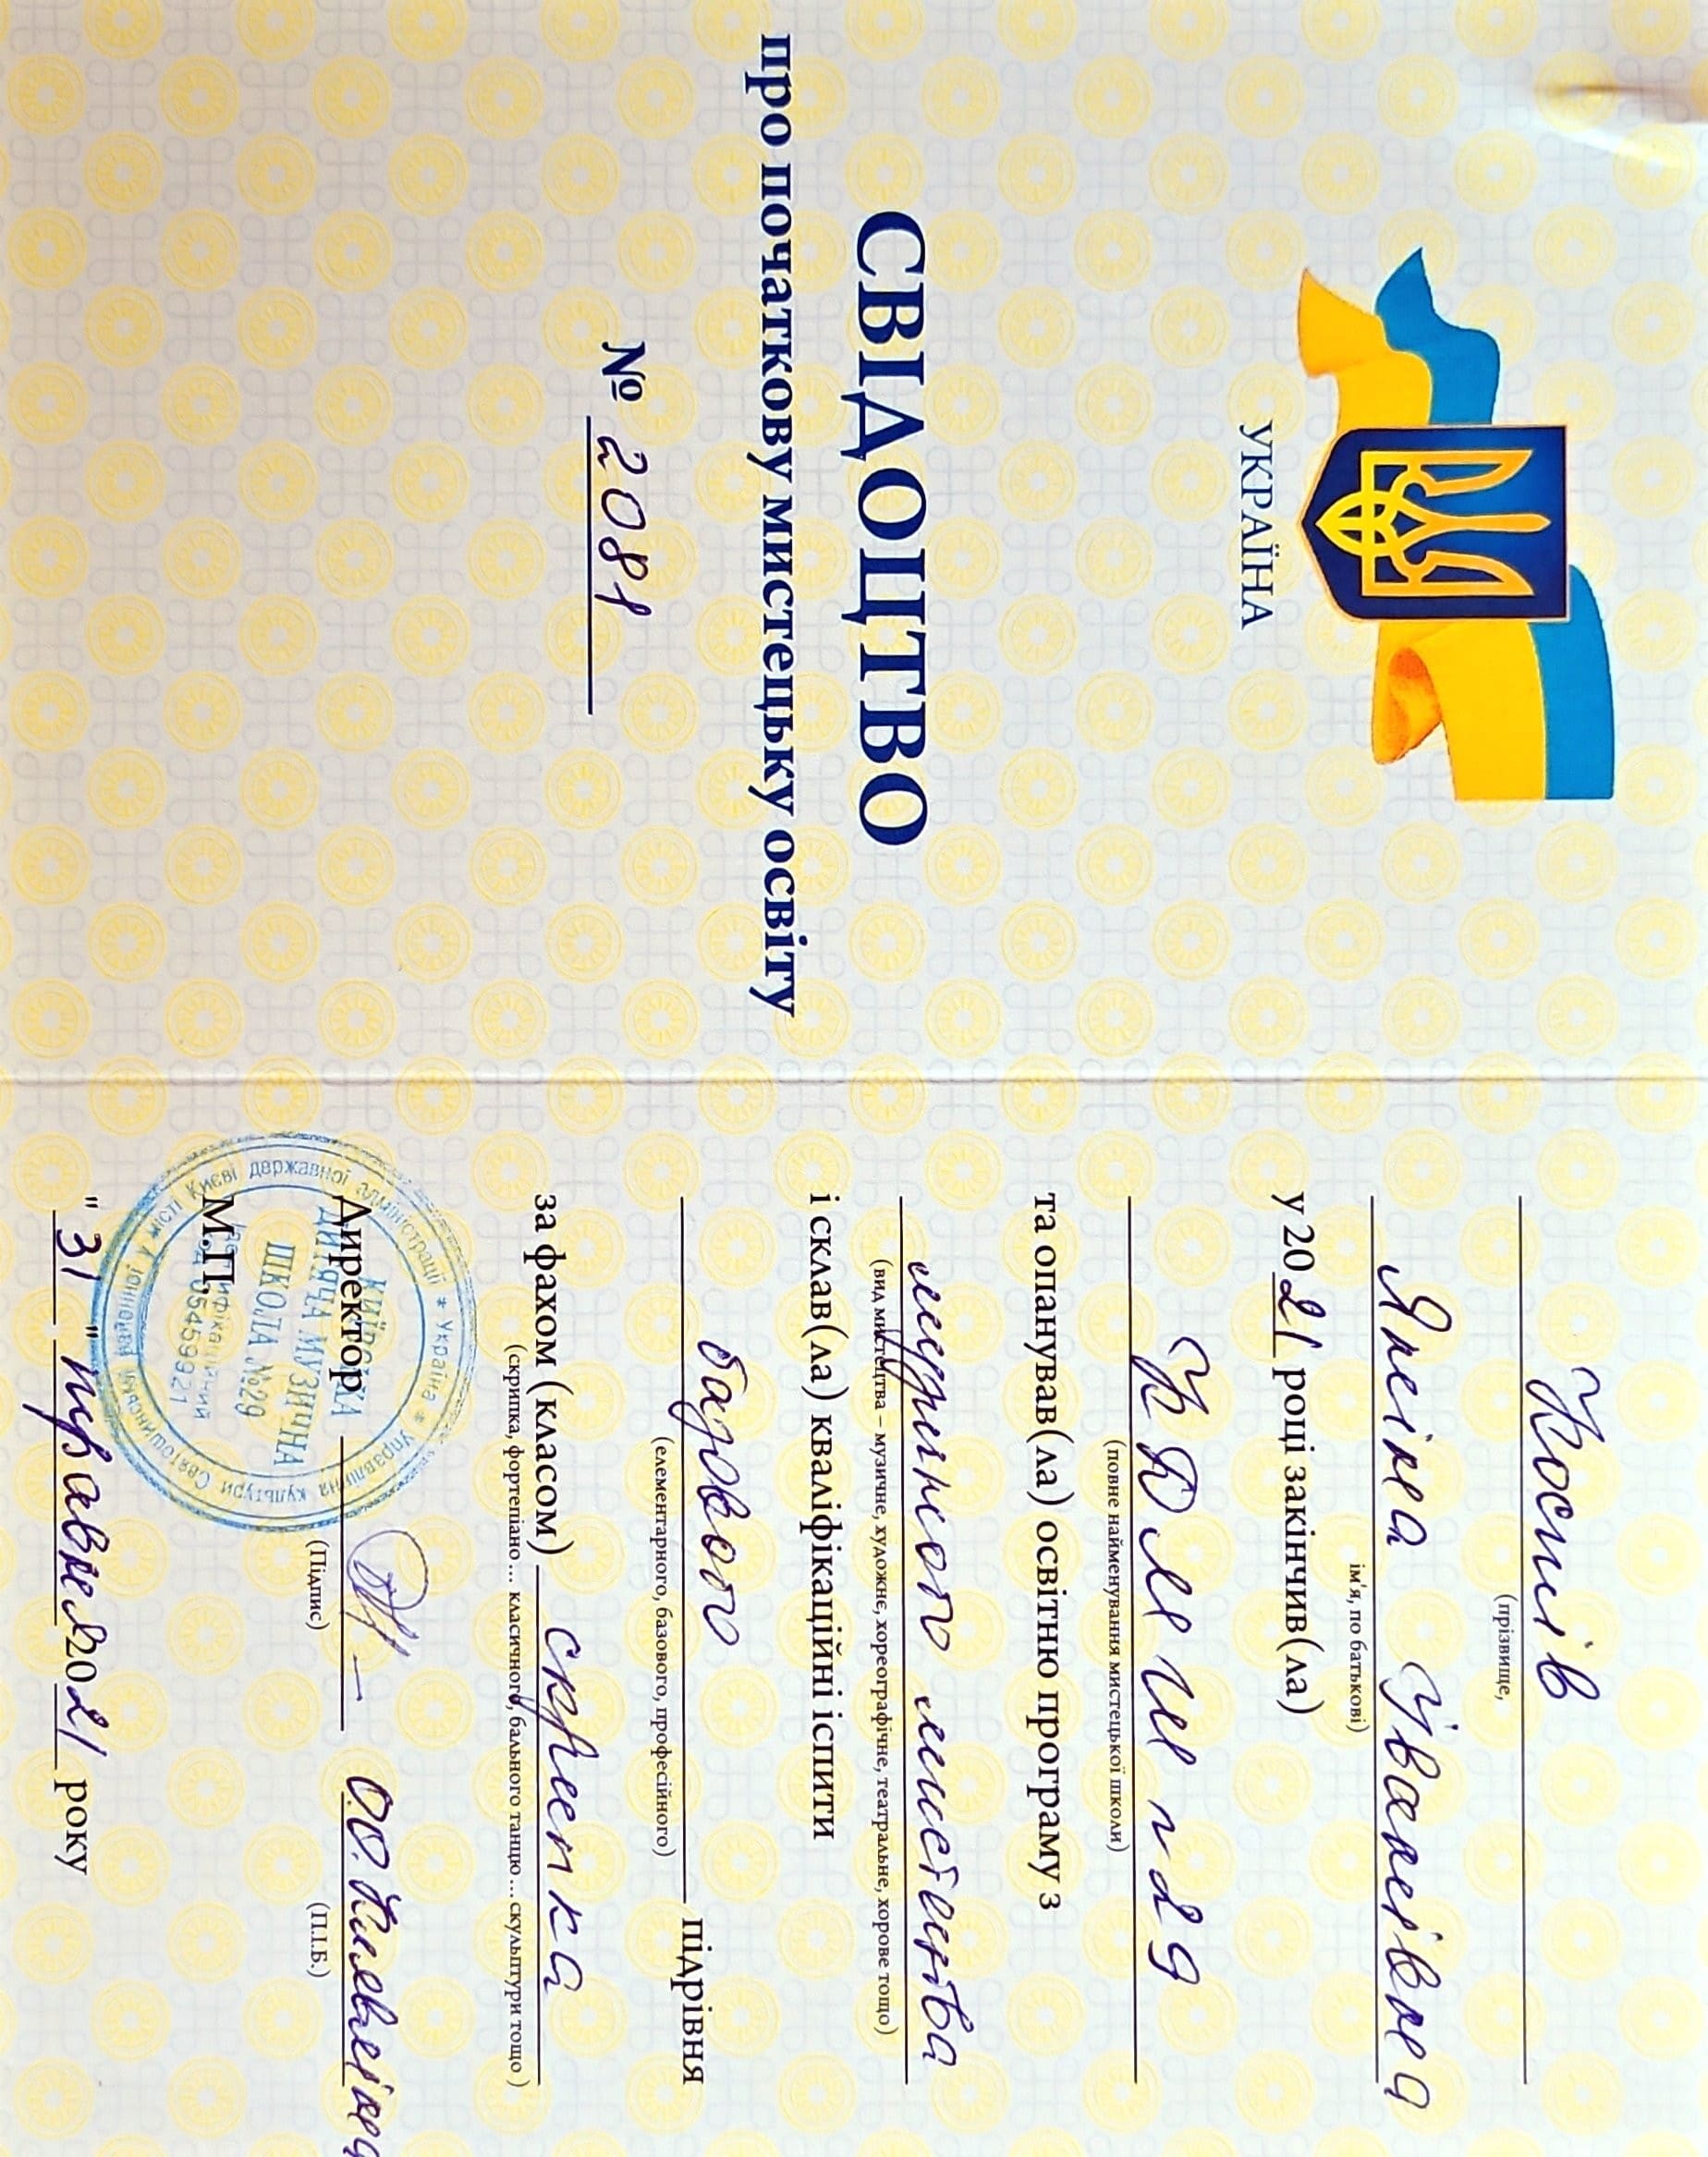 УКРАЇНА
СВІДОЦТВО
про початкову мистецьку освіту
№ 2081
Костів
(прізвище,
Яніна Іванівна
ім'я, по батькові)
у 2021 році закінчив(ла)
КДМШ №29
(повне найменування мистецької школи)
та опанував(ла) освітню програму з
музичного мистецтва
(вид мистецтва – музичне, художнє, хореографічне, театральне, хорове тощо)
і склав(ла) кваліфікаційні іспити
базового підрівня
(елементарного, базового, професійного)
за фахом (класом) скрипка
(скрипка, фортепіано... класичного, бального танцю... скульптури тощо )
Директор О.О. Клявліна
(Підпис) (П.І.Б.)
М.П.
* Україна * Управління культури Святошинської районної у місті Києві державної адміністрації
КИЇВСЬКА
ДИТЯЧА МУЗИЧНА
ШКОЛА №29
Ідентифікаційний
код 05459921
"31" травня 2021 року